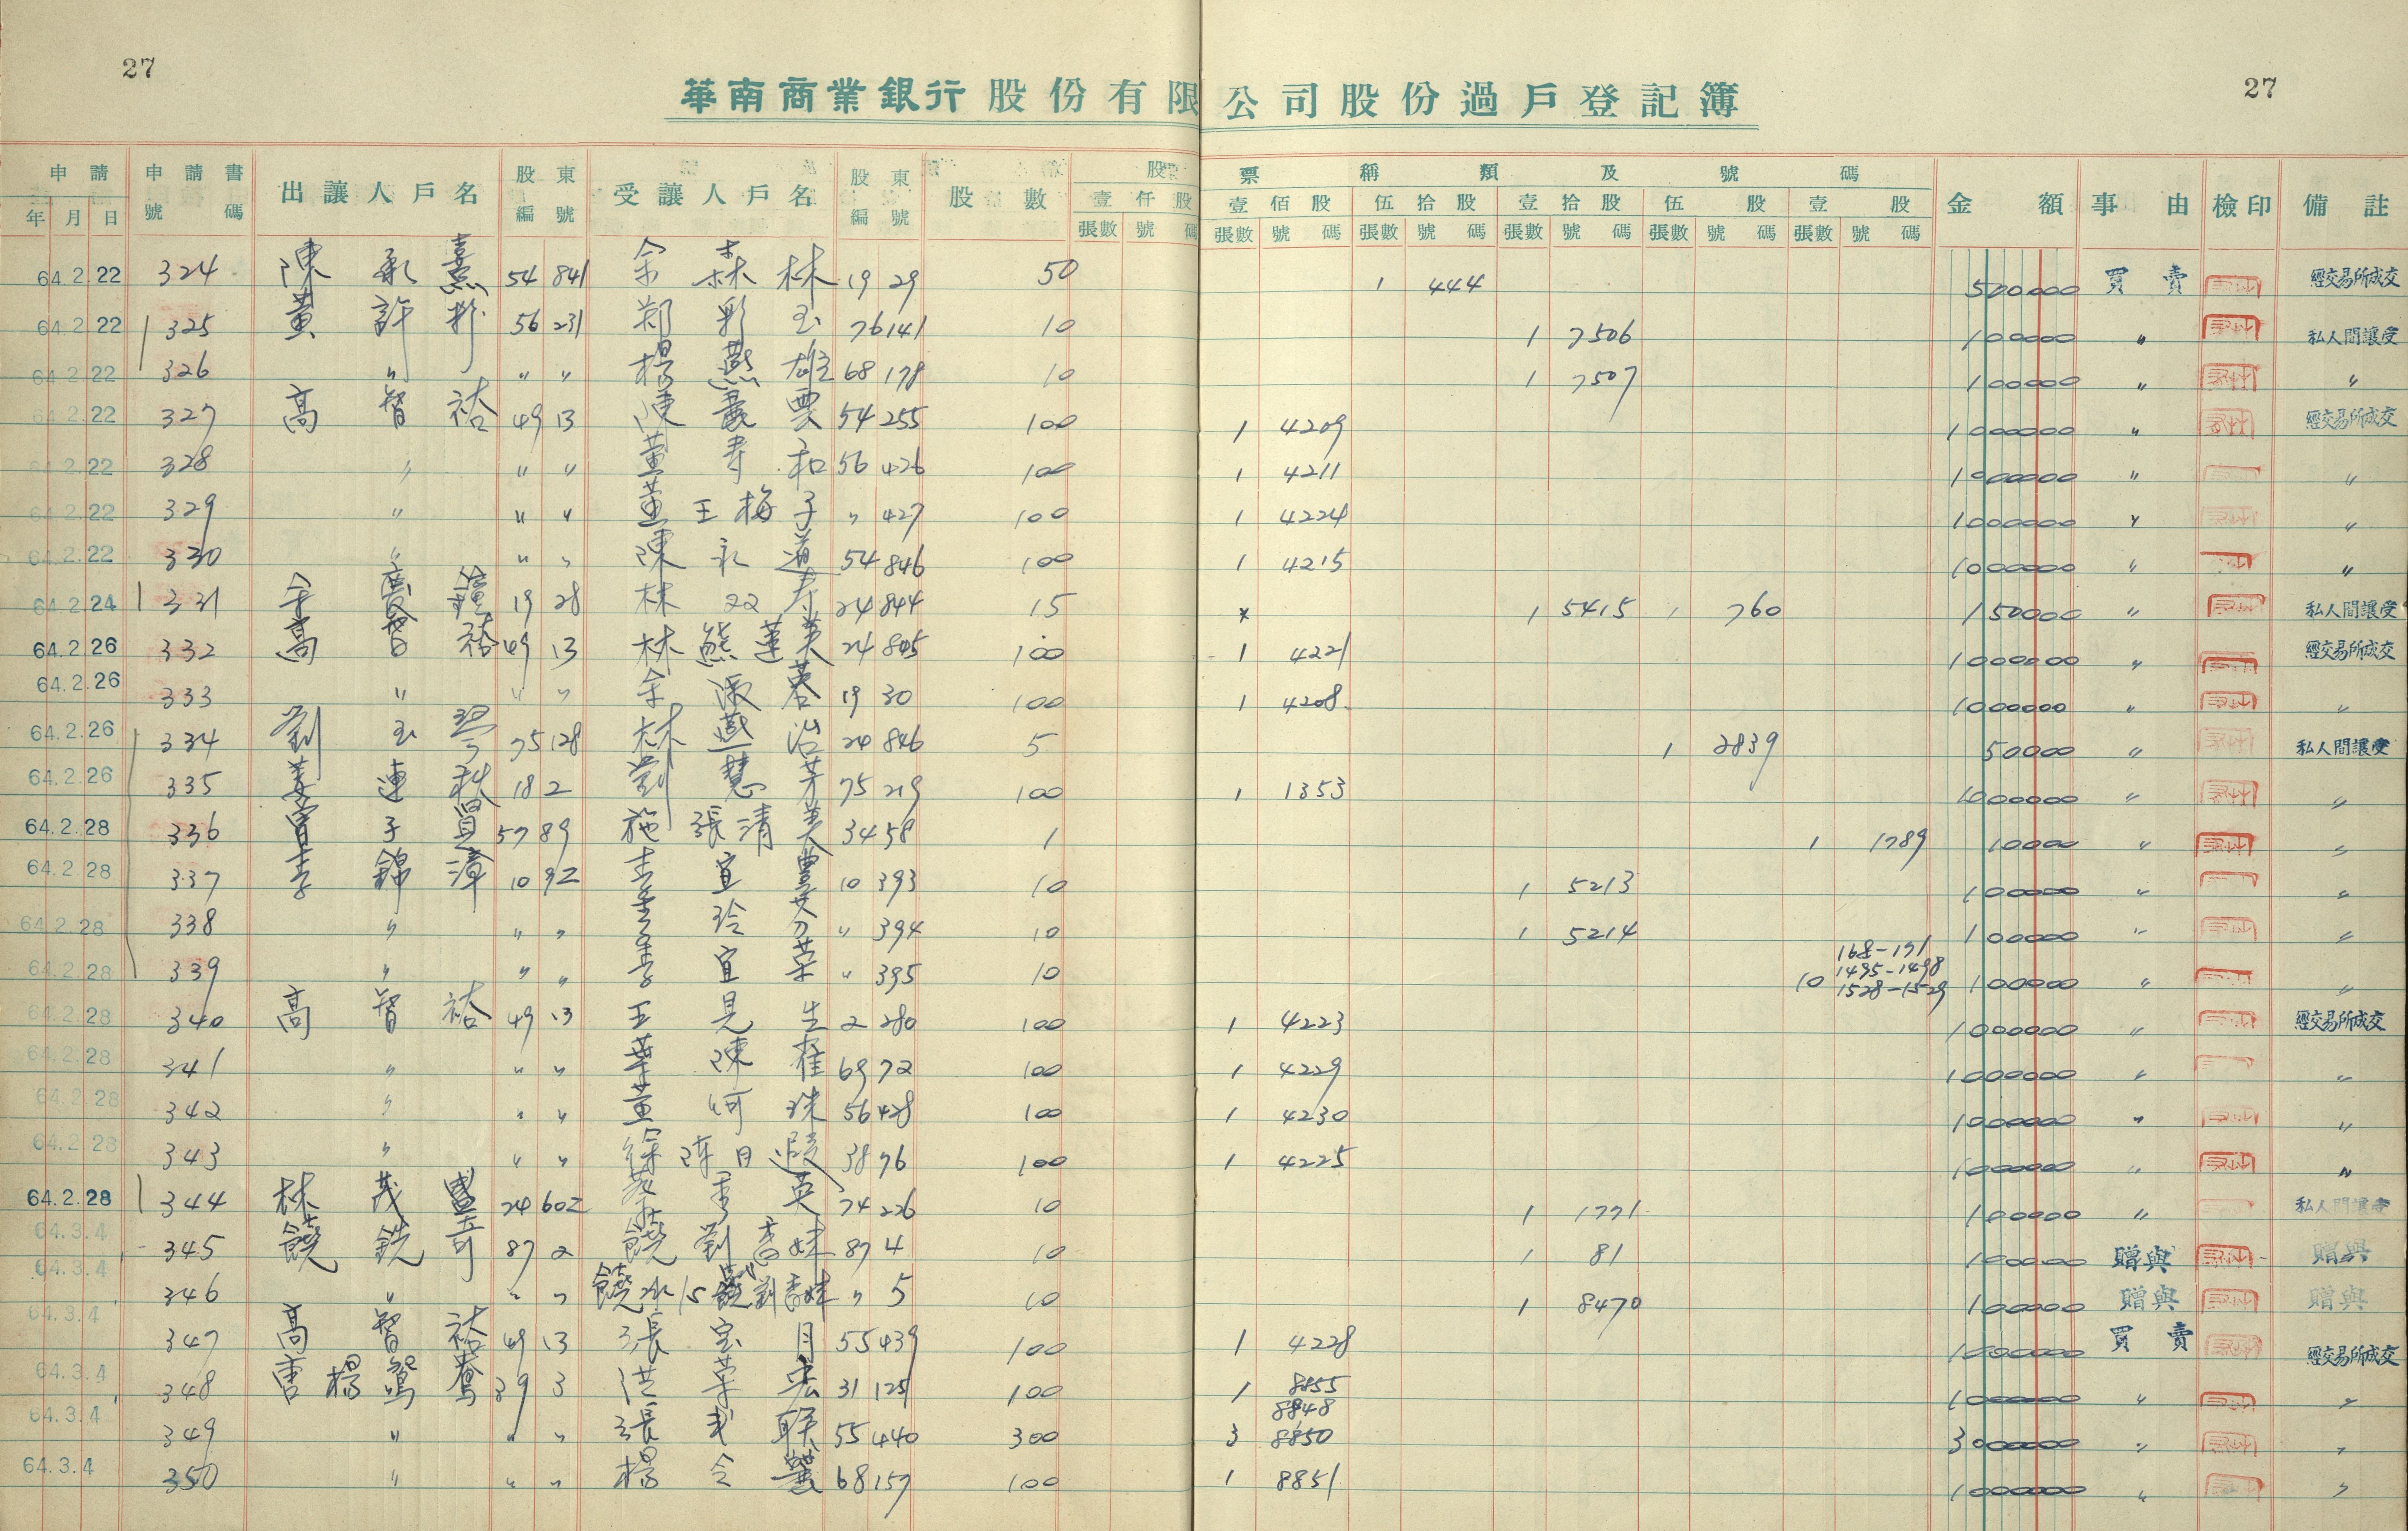 27
27
華南商業銀行股份有限公司股份過戶登記簿
申請 申請書 出讓人戶名 股東 受讓人戶名 股東 股數 股票稱類及號碼 金額 事由 檢印 備註
年 月 日 號碼 編號 編號 壹仟股 壹佰股 伍拾股 壹拾股 伍股 壹股
張數 號碼 張數 號碼 張數 號碼 張數 號碼 張數 號碼 張數 號碼
64.2.22 324 陳 熹 54 841 余森林 19 29 50 1 444 500000 買賣 經交易所成交
64.2.22 325 黃許 56 231 鄭彩玉 76 141 10 1 7506 100000 〃 私人間讓受
64.2.22 326 〃 〃 〃 楊燕雄 68 178 10 1 7507 100000 〃 〃
64.2.22 327 高智祐 49 13 陳 雲 54 255 100 1 4209 1000000 〃 經交易所成交
64.2.22 328 〃 〃 〃 黃壽和 56 426 100 1 4211 1000000 〃 〃
64.2.22 329 〃 〃 〃 黃王梅子 〃 427 100 1 4224 1000000 〃 〃
64.2.22 330 〃 〃 〃 陳永道 54 846 100 1 4215 1000000 〃 〃
64.2.24 331 余 鐘 19 28 林 24 844 15 1 5415 1 760 150000 〃 私人間讓受
64.2.26 332 高智祐 49 13 林熊蓮美 24 845 100 1 4221 1000000 〃 經交易所成交
64.2.26 333 〃 〃 〃 余淑蓉 19 30 100 1 4208 1000000 〃 〃
64.2.26 334 劉玉琴 75 128 林燕治 24 846 5 1 2839 50000 〃 私人間讓受
64.2.26 335 姜連秋 18 2 劉慧芳 75 219 100 1 1353 1000000 〃 〃
64.2.28 336 子昌 57 89 施張清美 34 58 1 1 1789 10000 〃 〃
64.2.28 337 李錦漳 10 92 李宜豊 10 393 10 1 5213 100000 〃 〃
64.2.28 338 〃 〃 〃 李玲芬 〃 394 10 1 5214 100000 〃 〃
168-171
1495-1498
64.2.28 339 〃 〃 〃 李宜荣 〃 395 10 10 1528-1529 100000 〃 〃
64.2.28 340 高智祐 49 13 王見生 2 280 100 1 4223 1000000 〃 經交易所成交
64.2.28 341 〃 〃 〃 葉陳 69 72 100 1 4229 1000000 〃 〃
64.2.28 342 〃 〃 〃 黃何珠 56 428 100 1 4230 1000000 〃 〃
64.2.28 343 〃 〃 〃 徐陳月 38 76 100 1 4225 1000000 〃 〃
64.2.28 344 林茂盛 24 602 蔡秀英 74 226 10 1 1771 100000 〃 私人間讓受
64.3.4 345 饒銑奇 87 2 饒劉 妹 87 4 10 1 81 100000 贈與 贈與
64.3.4 346 〃 〃 〃 饒 劉 妹 〃 5 10 1 8470 100000 贈與 贈與
64.3.4 347 高智祐 49 13 張宝月 55 439 100 1 4228 1000000 買賣 經交易所成交
64.3.4 348 曹楊鴛鴦 39 3 洪荣宏 31 125 100 1 8855 1000000 〃 〃
8848
64.3.4 349 〃 〃 〃 張 聯 55 440 300 3 8850 3000000 〃 〃
64.3.4 350 〃 〃 〃 楊令 68 157 100 1 8851 1000000 〃 〃